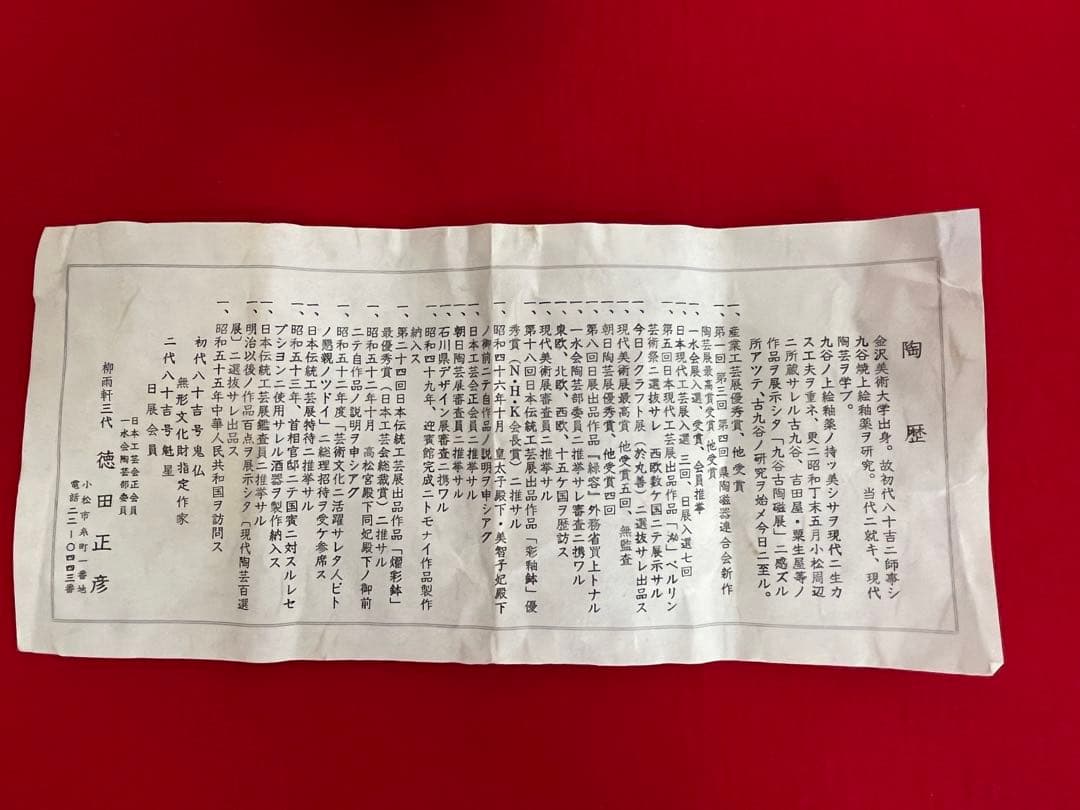 陶歴
金沢美術大学出身。故初代八十吉ニ師事シ
九谷焼上絵釉薬ヲ研究。当代ニ就キ、現代
陶芸ヲ学ブ。
九谷ノ上絵釉薬ノ持ツ美シサヲ現代ニ生カ
スエ夫ヲ重ネ、更ニ昭和丁末五月小松周辺
ニ所蔵サレル古九谷、吉田屋・粟生屋等ノ
作品ヲ展示シタ「九谷古陶磁展」ニ感ズル
所アツテ、古九谷ノ研究ヲ始メ今日ニ至ル。
一、産業工芸展優秀賞、他受賞
一、第一回 第三回 第四回 県陶磁器連合会新作
陶芸展最高賞受賞、他受賞
一、一水会展入選、受賞、会員推挙
一、日本現代工芸展入選 三回、日展入選七回
一、第五回日本現代工芸展出品作品「泑」ベルリン
芸術祭ニ選抜サレ 西欧数ケ国ニテ展示サル
一、今日ノクラフト展（於丸善）ニ選抜サレ出品ス
一、現代美術展最高賞 他受賞五回、無監査
一、朝日陶芸展優秀賞、他受賞四回
一、第八回日展出品作品『緑容』外務省買上トナル
一、一水会陶芸部委員ニ推挙サレ審査ニ携ワル
一、東欧、北欧、西欧、十五ケ国ヲ歴訪ス
一、現代美術展審査員ニ推挙サル
一、第十八回日本伝統工芸展出品作品「彩釉鉢」優
秀賞（N・H・K会長賞）ニ推サル
一、昭和四十六年十月 皇太子殿下・美智子妃殿下
ノ御前ニテ自作品ノ説明ヲ申シアグ
一、日本工芸会正会員ニ推挙サル
一、朝日陶芸展審査員ニ推挙サル
一、石川県デザイン展審査ニ携ワル
一、昭和四十九年、迎賓館完成ニトモナイ作品製作
納入ス
一、第二十四回日本伝統工芸展出品作品「燿彩鉢」
最優秀賞（日本工芸会総裁賞）ニ推サル
一、昭和五十二年十月 高松宮殿下同妃殿下ノ御前
ニテ自作品ノ説明ヲ申シアグ
一、昭和五十二年度「芸術文化ニ活躍サレタ人ビト
ノ懇親ノツドイ」ニ総理招待ヲ受ケ参席ス
一、日本伝統工芸展特待ニ推挙サル
一、昭和五十三年、首相官邸ニテ国賓ニ対スルレセ
プションニ使用サレル酒器ヲ製作納入ス
一、日本伝統工芸展鑑査員ニ推挙サル
一、明治以後ノ作品百点ヲ展示シタ〔現代陶芸百選
展〕ニ選抜サレ出品ス
一、昭和五十五年中華人民共和国ヲ訪問ス
初代八十吉号 鬼仏
無形文化財指定作家
二代八十吉号 魁星
日展会員
日本工芸会正会員
一水会陶芸部委員
柳雨軒三代 徳田正彦
小松市糸町一番地
電話二二−〇四四三番